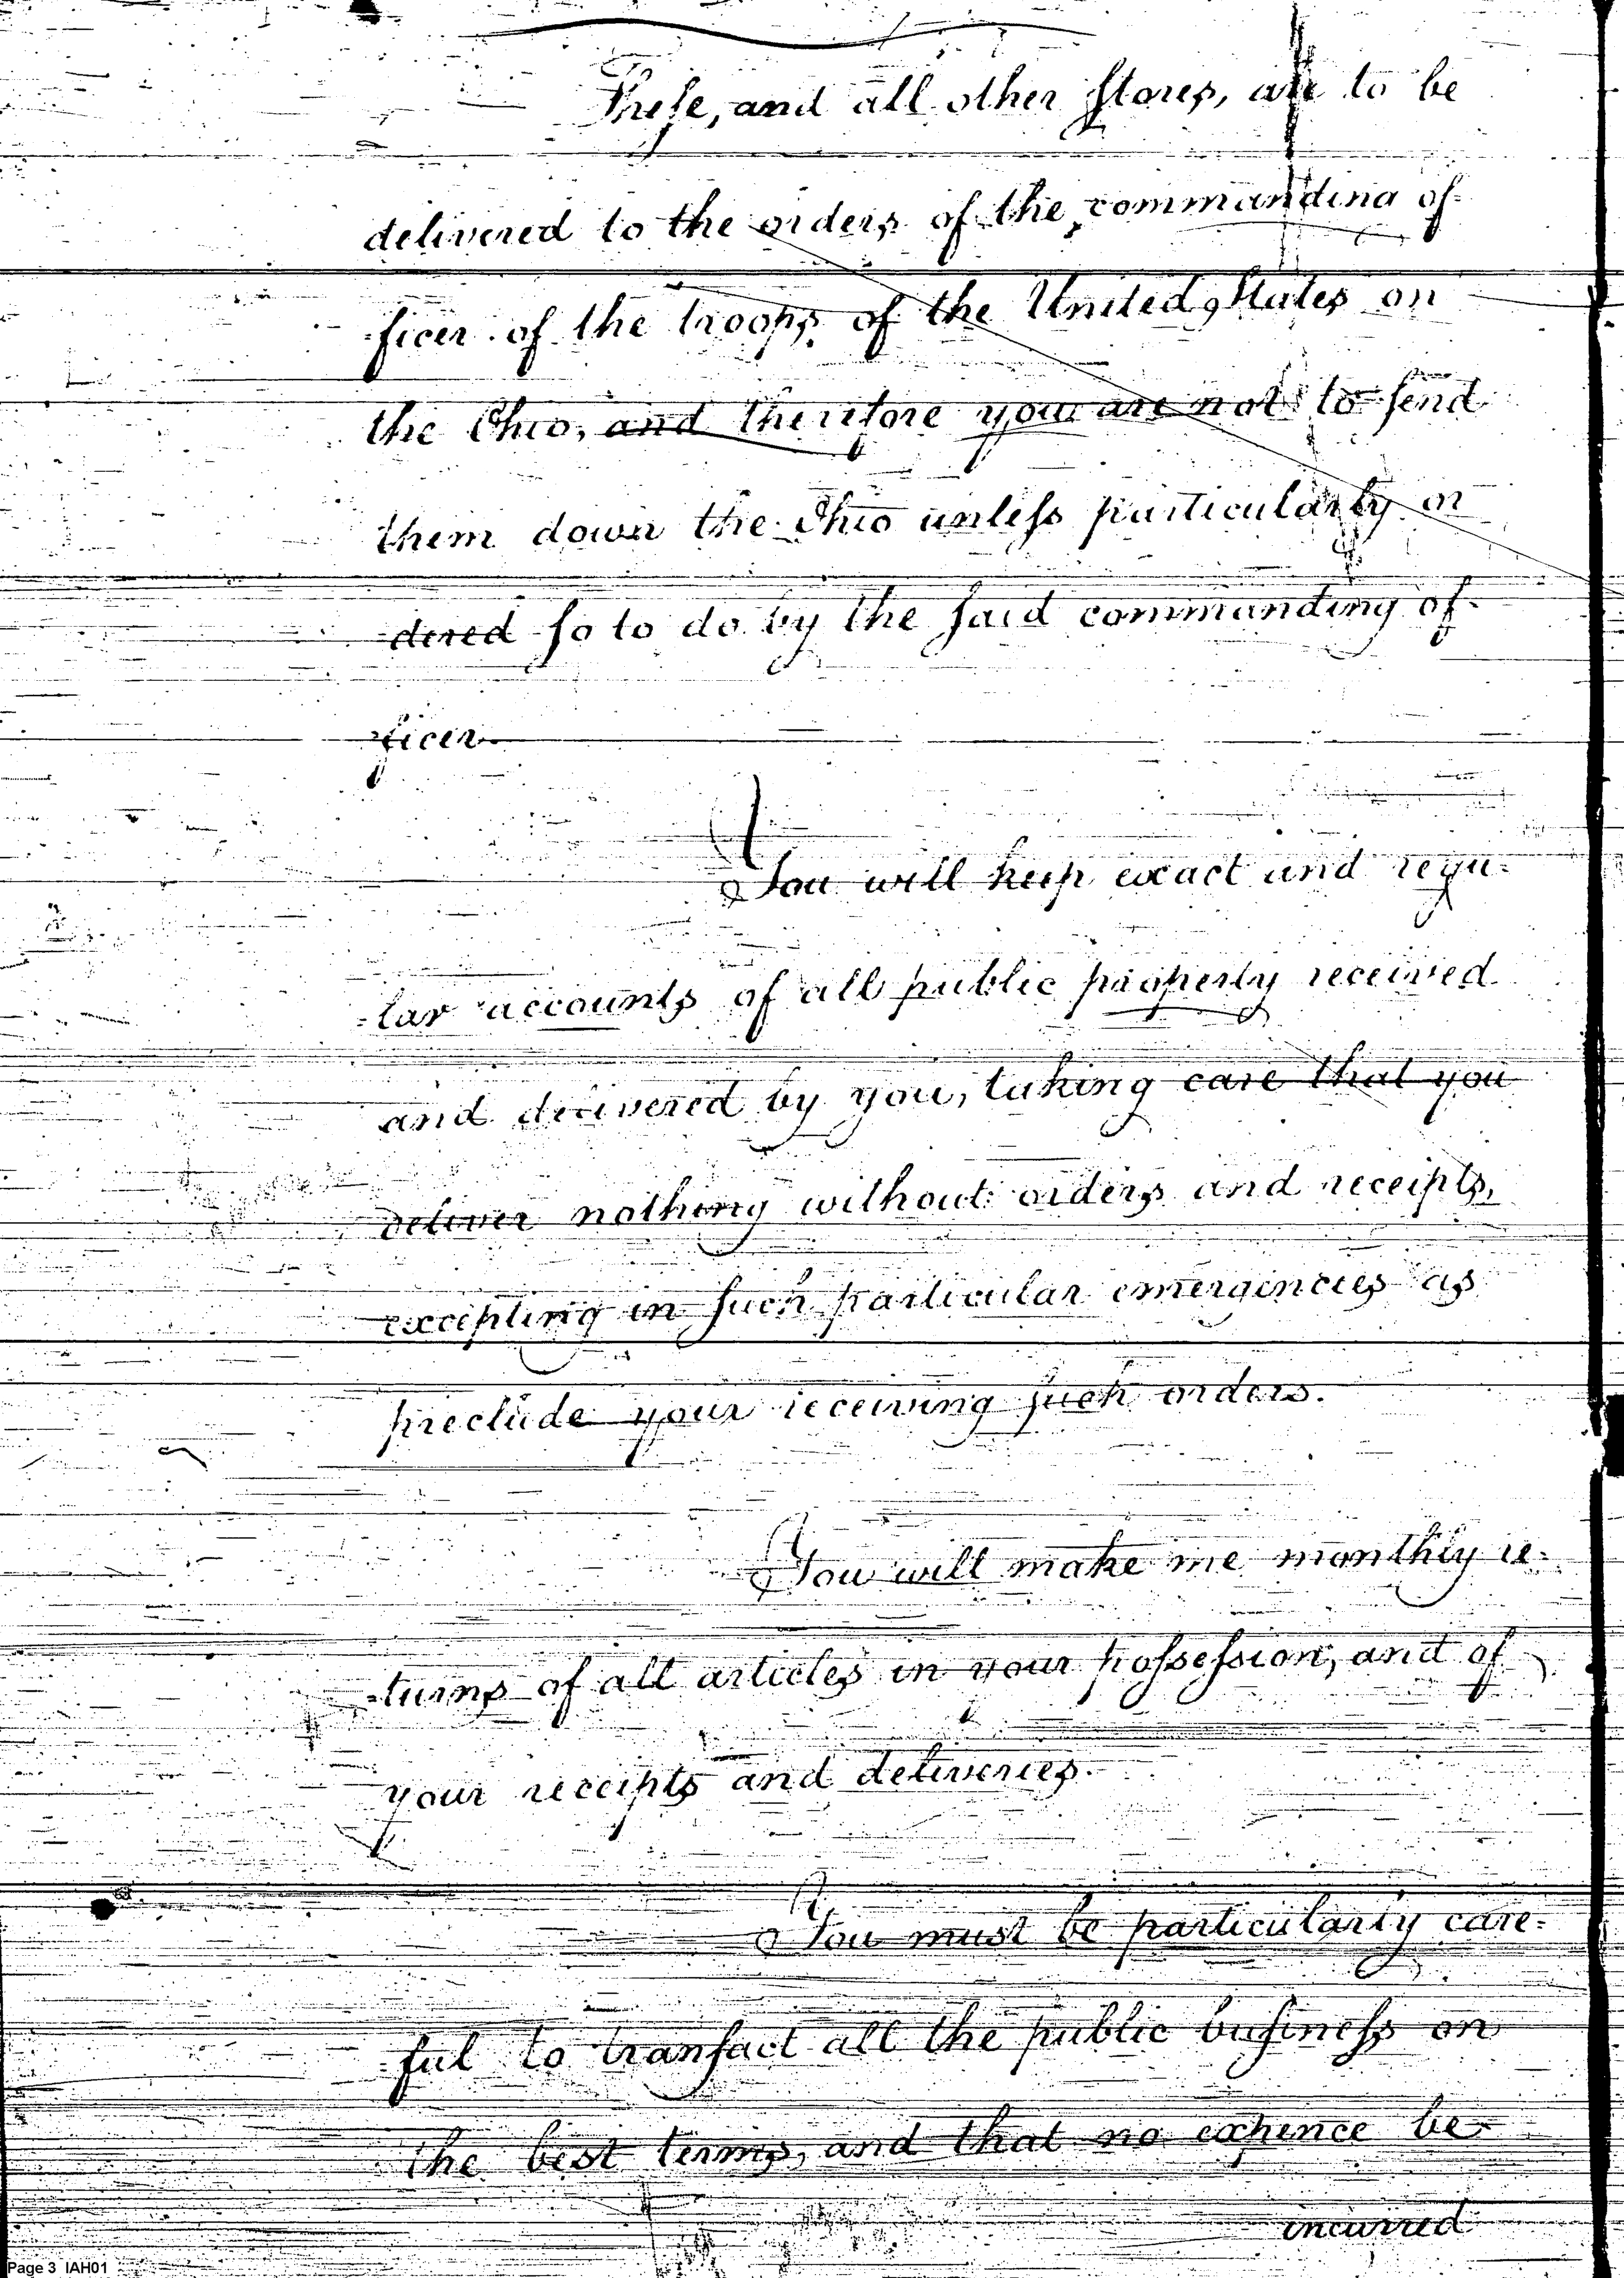 These, and all other stores, are to be
delivered to the orders of the commanding of-
-ficer of the troops of the United States on
the Ohio, and therefore you are not to send
them down the Ohio unless particularly or
-dered so to do by the said commanding of-
-ficer.
You will keep exact and regu-
-lar accounts of all public property received
and delivered by you, taking care that you
deliver nothing without orders and receipts,
excepting in such particular emergencies as
preclude your receiving such orders.
You will make me monthly re-
-turns of all articles in your possession, and of
your receipts and deliveries.
You must be particularly care-
-ful to transact all the public business on
the best terms, and that no expence be
incurred
Page 3 IAH01